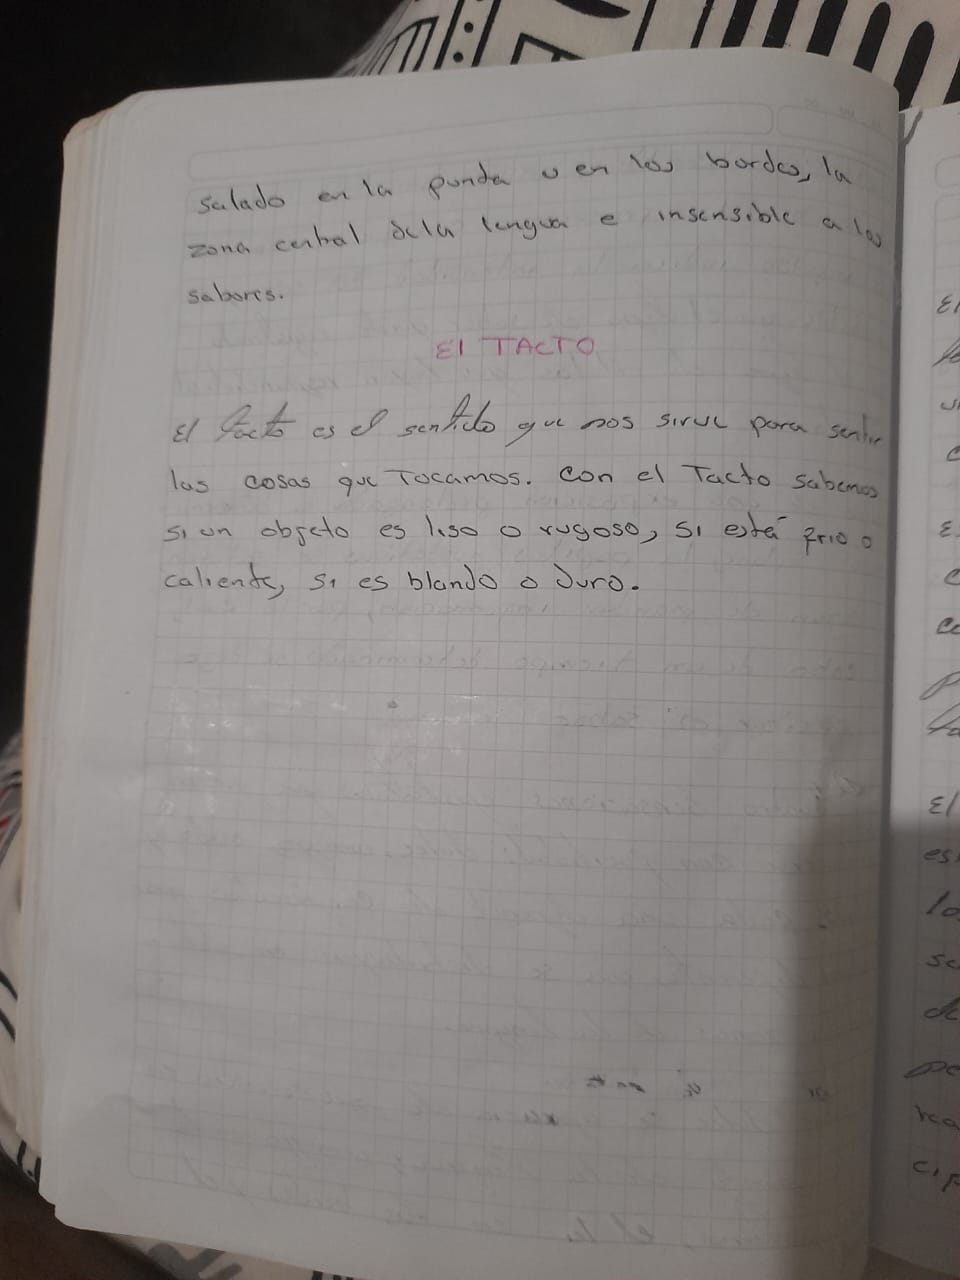 salado en la punda u en los bordes, la
zona central dela lengua e insensible a los
sabores.
El TACTO
El tacto es el sentido que nos sirve para sentir
las cosas que Tocamos. Con el Tacto sabemos
si un objeto es liso o rugoso, si está frio o
caliente, si es blando o Duro.
El
El
es
lo